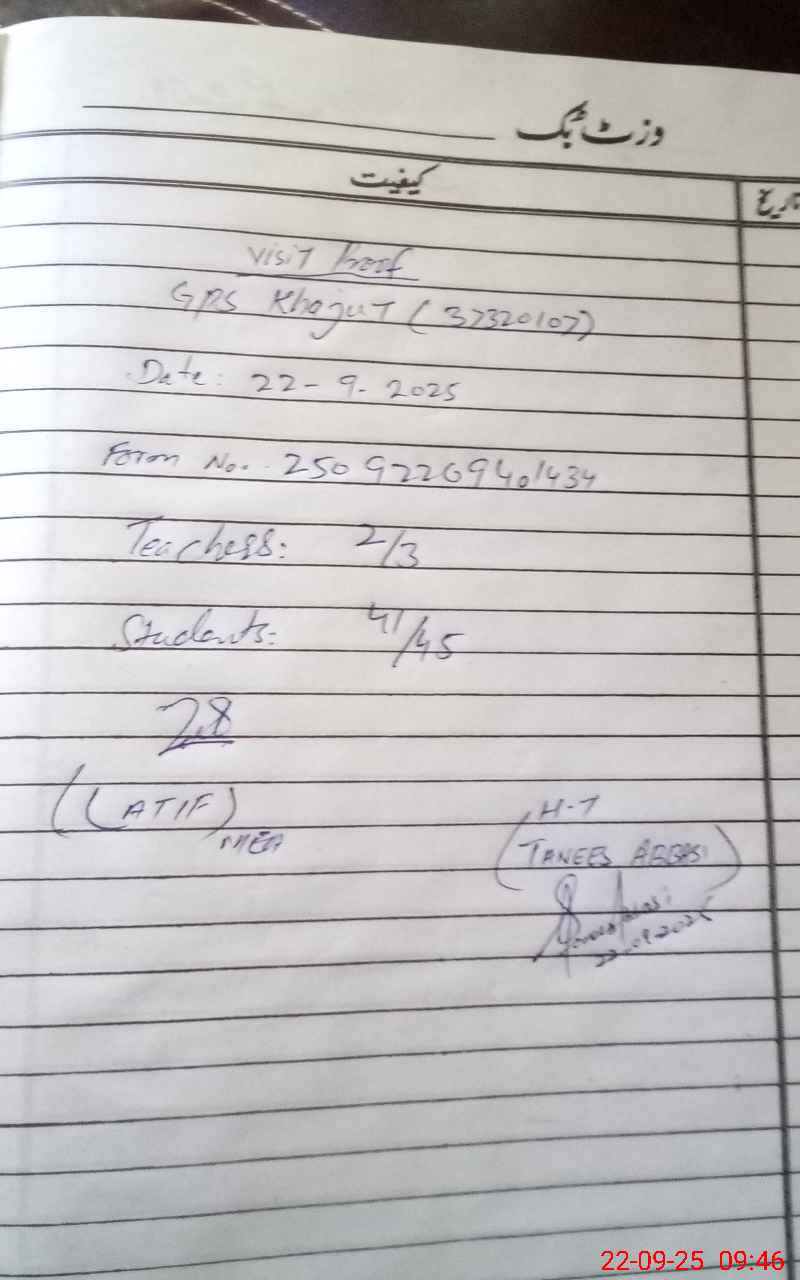 وزٹ بک
کیفیت
تاریخ
Visit Proof
GPS Khojut (37320107)
Date: 22-9-2025
Form No. 25092209401434
Teachers: 2/3
Students: 41/45
28
(ATIF)
MEA
H-T
(TANEES ABBASI)
22.09.2025
22-09-25 09:46